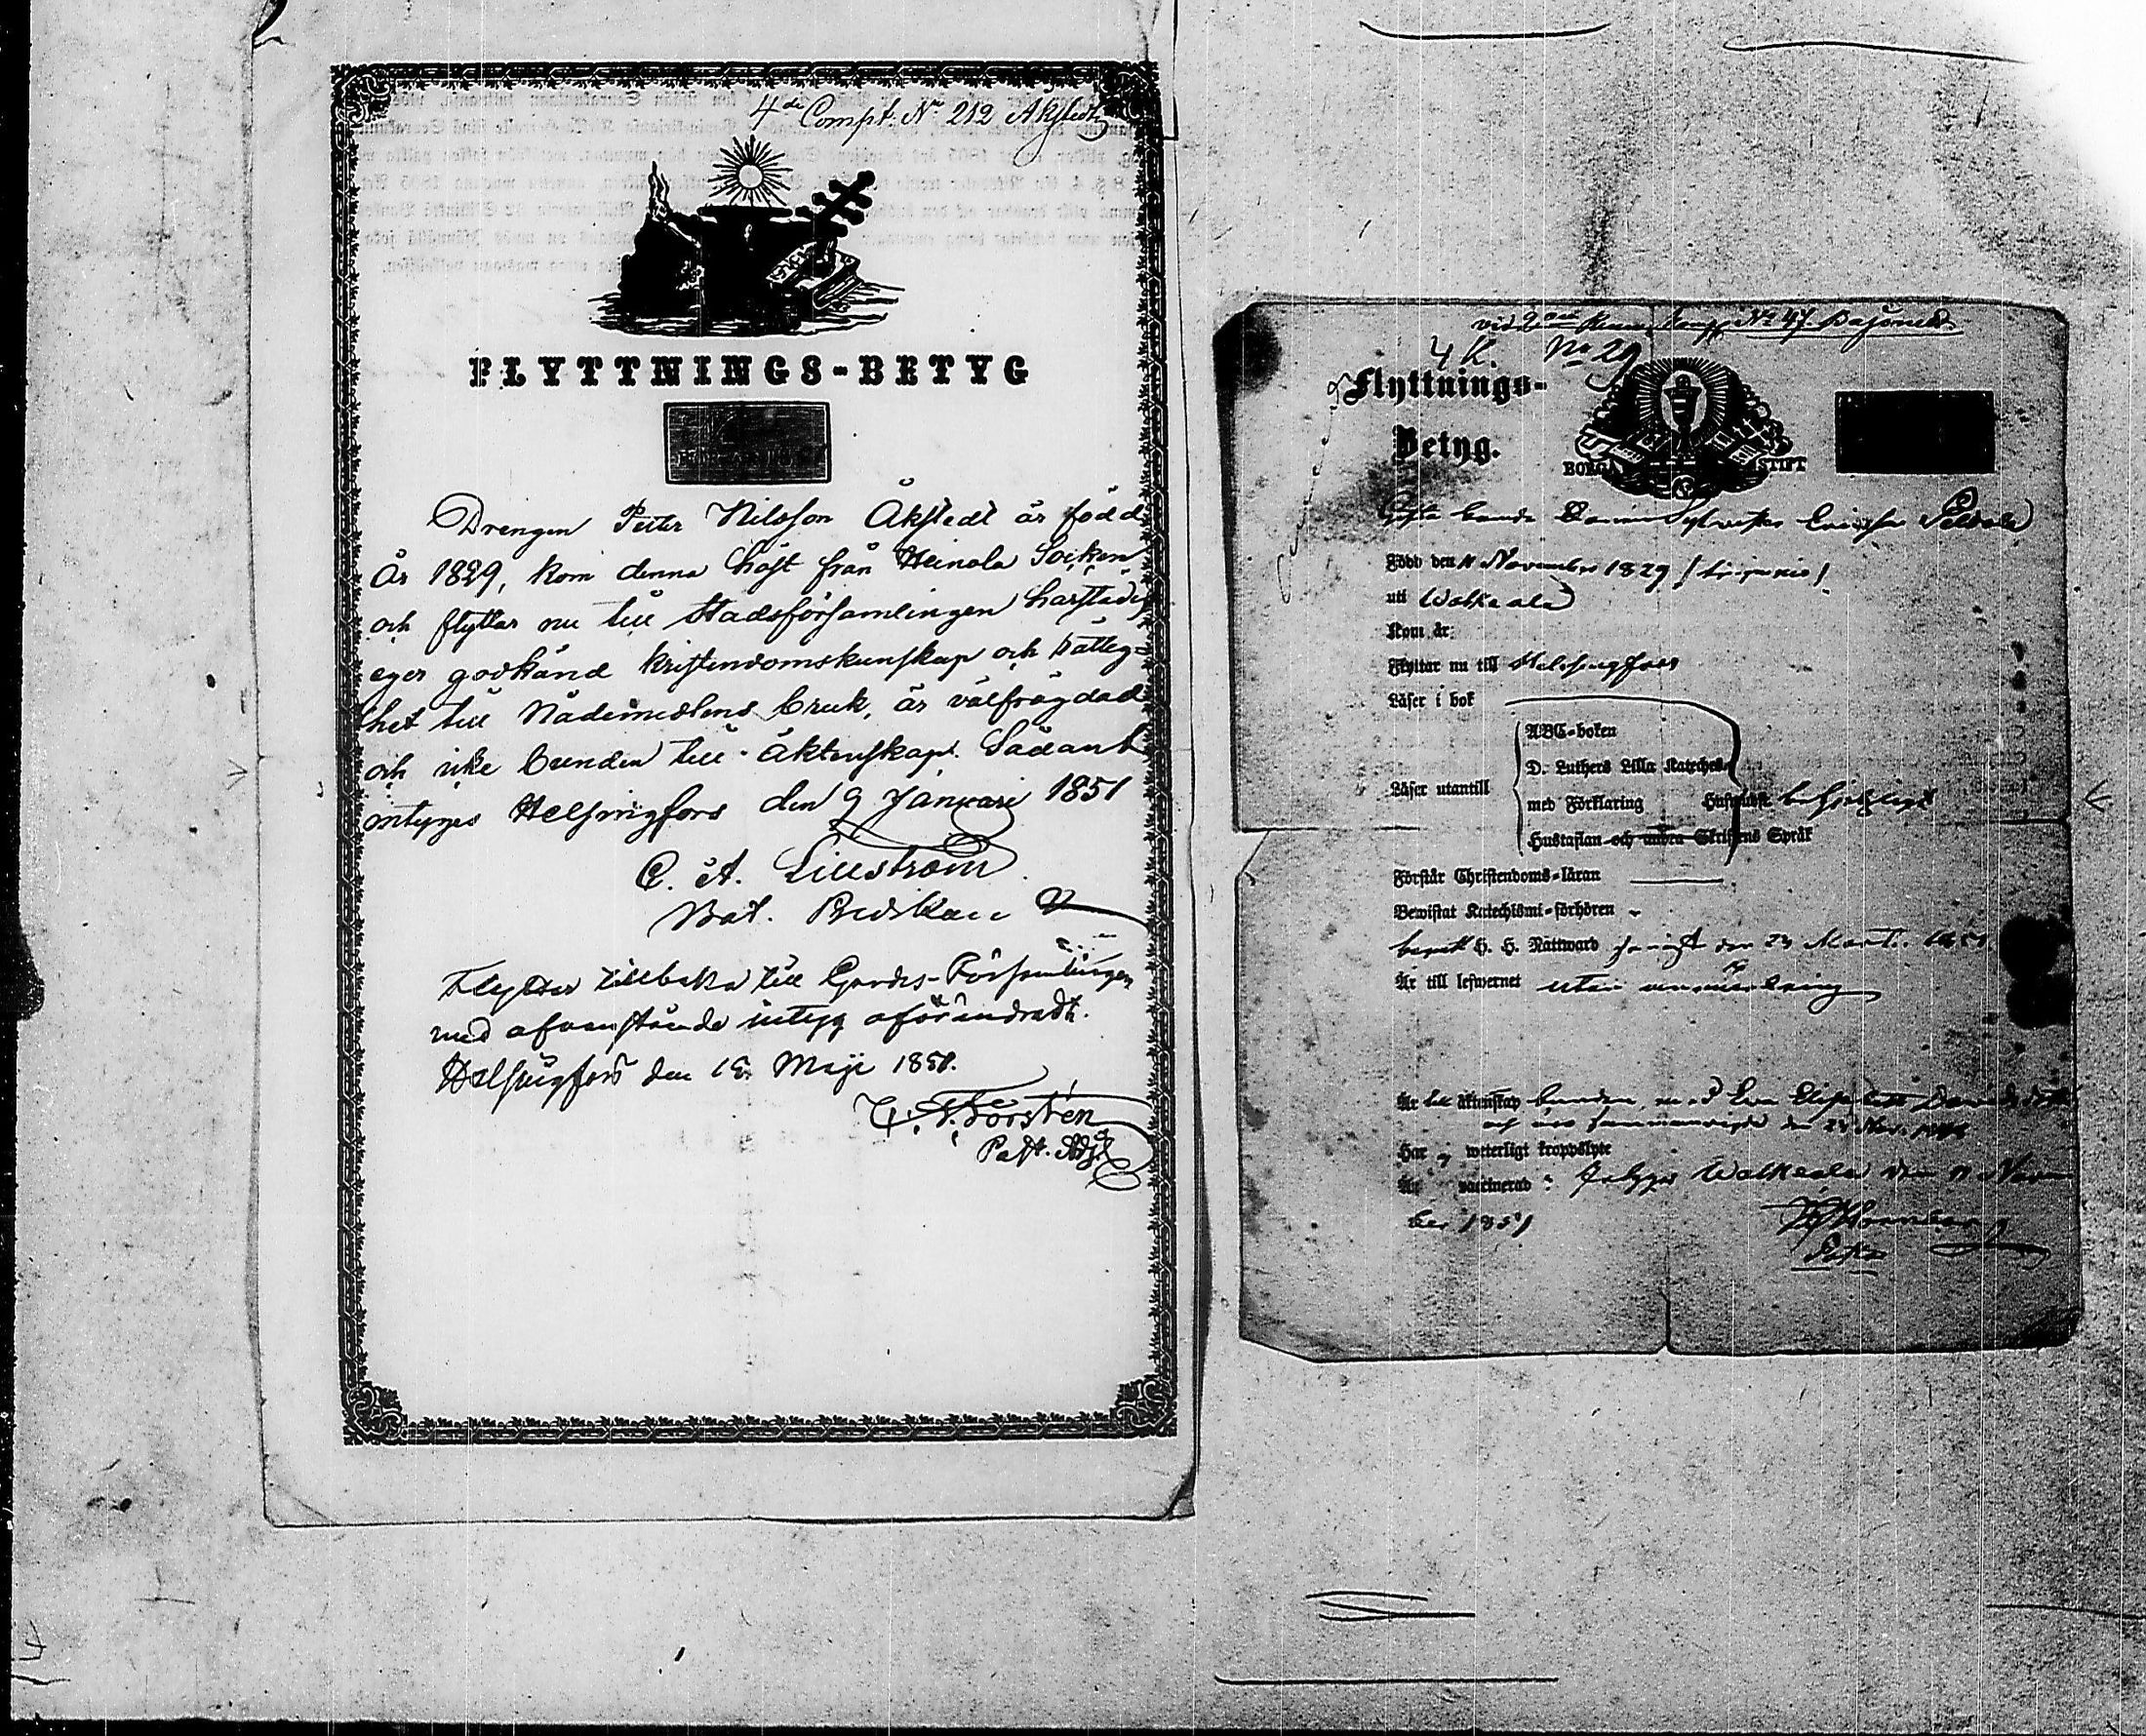 4de Comp. No 212 Åkstedt
FLYTTNINGS-BETYG
Drengen Peter Nilsson Åkstedt är född
år 1829, kom denna höst från Heinola Socken
och flyttar nu till Stadsförsamlingen härstädes
eger godkänd kristendomskunskap och rättig-
het till Nådemedlens bruk, är välfrägdad
och icke bunden till äktenskap. Sådant
intygas Helsingfors den 9 Januari 1851
C. A. Lillström
Bat. Predikant
Flyttar tillbaka till Gardes-Församlingen
med ofvanstående intyg oförändradt.
Helsingfors den 15 Maji 1851.
Forstén
Past. Adj.
No 47
4 K. No 29
Flyttnings-
Betyg.
BORGÅ STIFT
Född den 11 November 1829
uti Walkeala
Kom år
Flyttar nu till Helsingfors
Läser i bok
ABC-boken
D. Luthers Lilla Kateches
Läser utantill
med Förklaring
Hustaflan och andra Skriftens Språk
Förstår Christendoms-läran
Bewistat Katechismi-förhören
H. H. Nattward den 23 Mart. 1851
Är till lefwernet utan anmärkning
Är till äktenskap bunden med Eva Elisabeth
Har ej weterligt kroppslyte
Är vaccinerad: Intygar Walkeala den 11 Novem
ber 1851